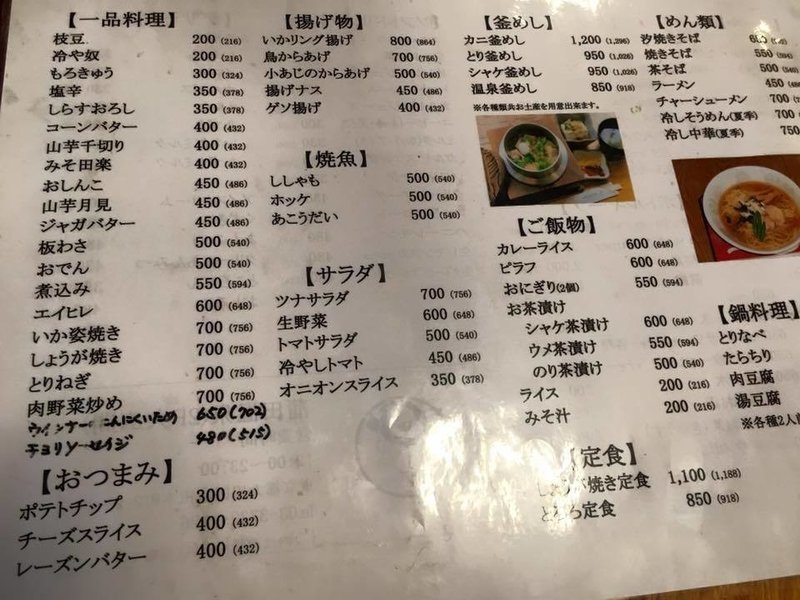 【一品料理】
枝豆 200 (216)
冷や奴 200 (216)
もろきゅう 300 (324)
塩辛 350 (378)
しらすおろし 350 (378)
コーンバター 400 (432)
山芋千切り 400 (432)
みそ田楽 400 (432)
おしんこ 450 (486)
山芋月見 450 (486)
ジャガバター 450 (486)
板わさ 500 (540)
おでん 500 (540)
煮込み 550 (594)
エイヒレ 600 (648)
いか姿焼き 700 (756)
しょうが焼き 700 (756)
とりねぎ 700 (756)
肉野菜炒め 700 (756)
ウインナーのにんにくいため 650(702)
チョリソーセイジ 480(515)
【おつまみ】
ポテトチップ 300 (324)
チーズスライス 400 (432)
レーズンバター 400 (432)
【揚げ物】
いかリング揚げ 800 (864)
鳥からあげ 700 (756)
小あじのからあげ 500 (540)
揚げナス 450 (486)
ゲソ揚げ 400 (432)
【焼魚】
ししゃも 500 (540)
ホッケ 500 (540)
あこうだい 500 (540)
【サラダ】
ツナサラダ 700 (756)
生野菜 600 (648)
トマトサラダ 500 (540)
冷やしトマト 450 (486)
オニオンスライス 350 (378)
【釜めし】
カニ釜めし 1,200 (1,296)
とり釜めし 950 (1,026)
シャケ釜めし 950 (1,026)
温泉釜めし 850 (918)
※各種類共お土産を用意出来ます。
【ご飯物】
カレーライス 600 (648)
ピラフ 600 (648)
おにぎり(2個) 550 (594)
お茶漬け
シャケ茶漬け 600 (648)
ウメ茶漬け 550 (594)
のり茶漬け 500 (540)
ライス 200 (216)
みそ汁 200 (216)
【定食】
しょうが焼き定食 1,100 (1,188)
定食 850 (918)
【めん類】
汐焼きそば
焼きそば 550
茶そば 500
ラーメン 450
チャーシューメン 700
冷しそうめん(夏季) 700
冷し中華(夏季) 750
【鍋料理】
とりなべ
たらちり
肉豆腐
湯豆腐
※各種2人